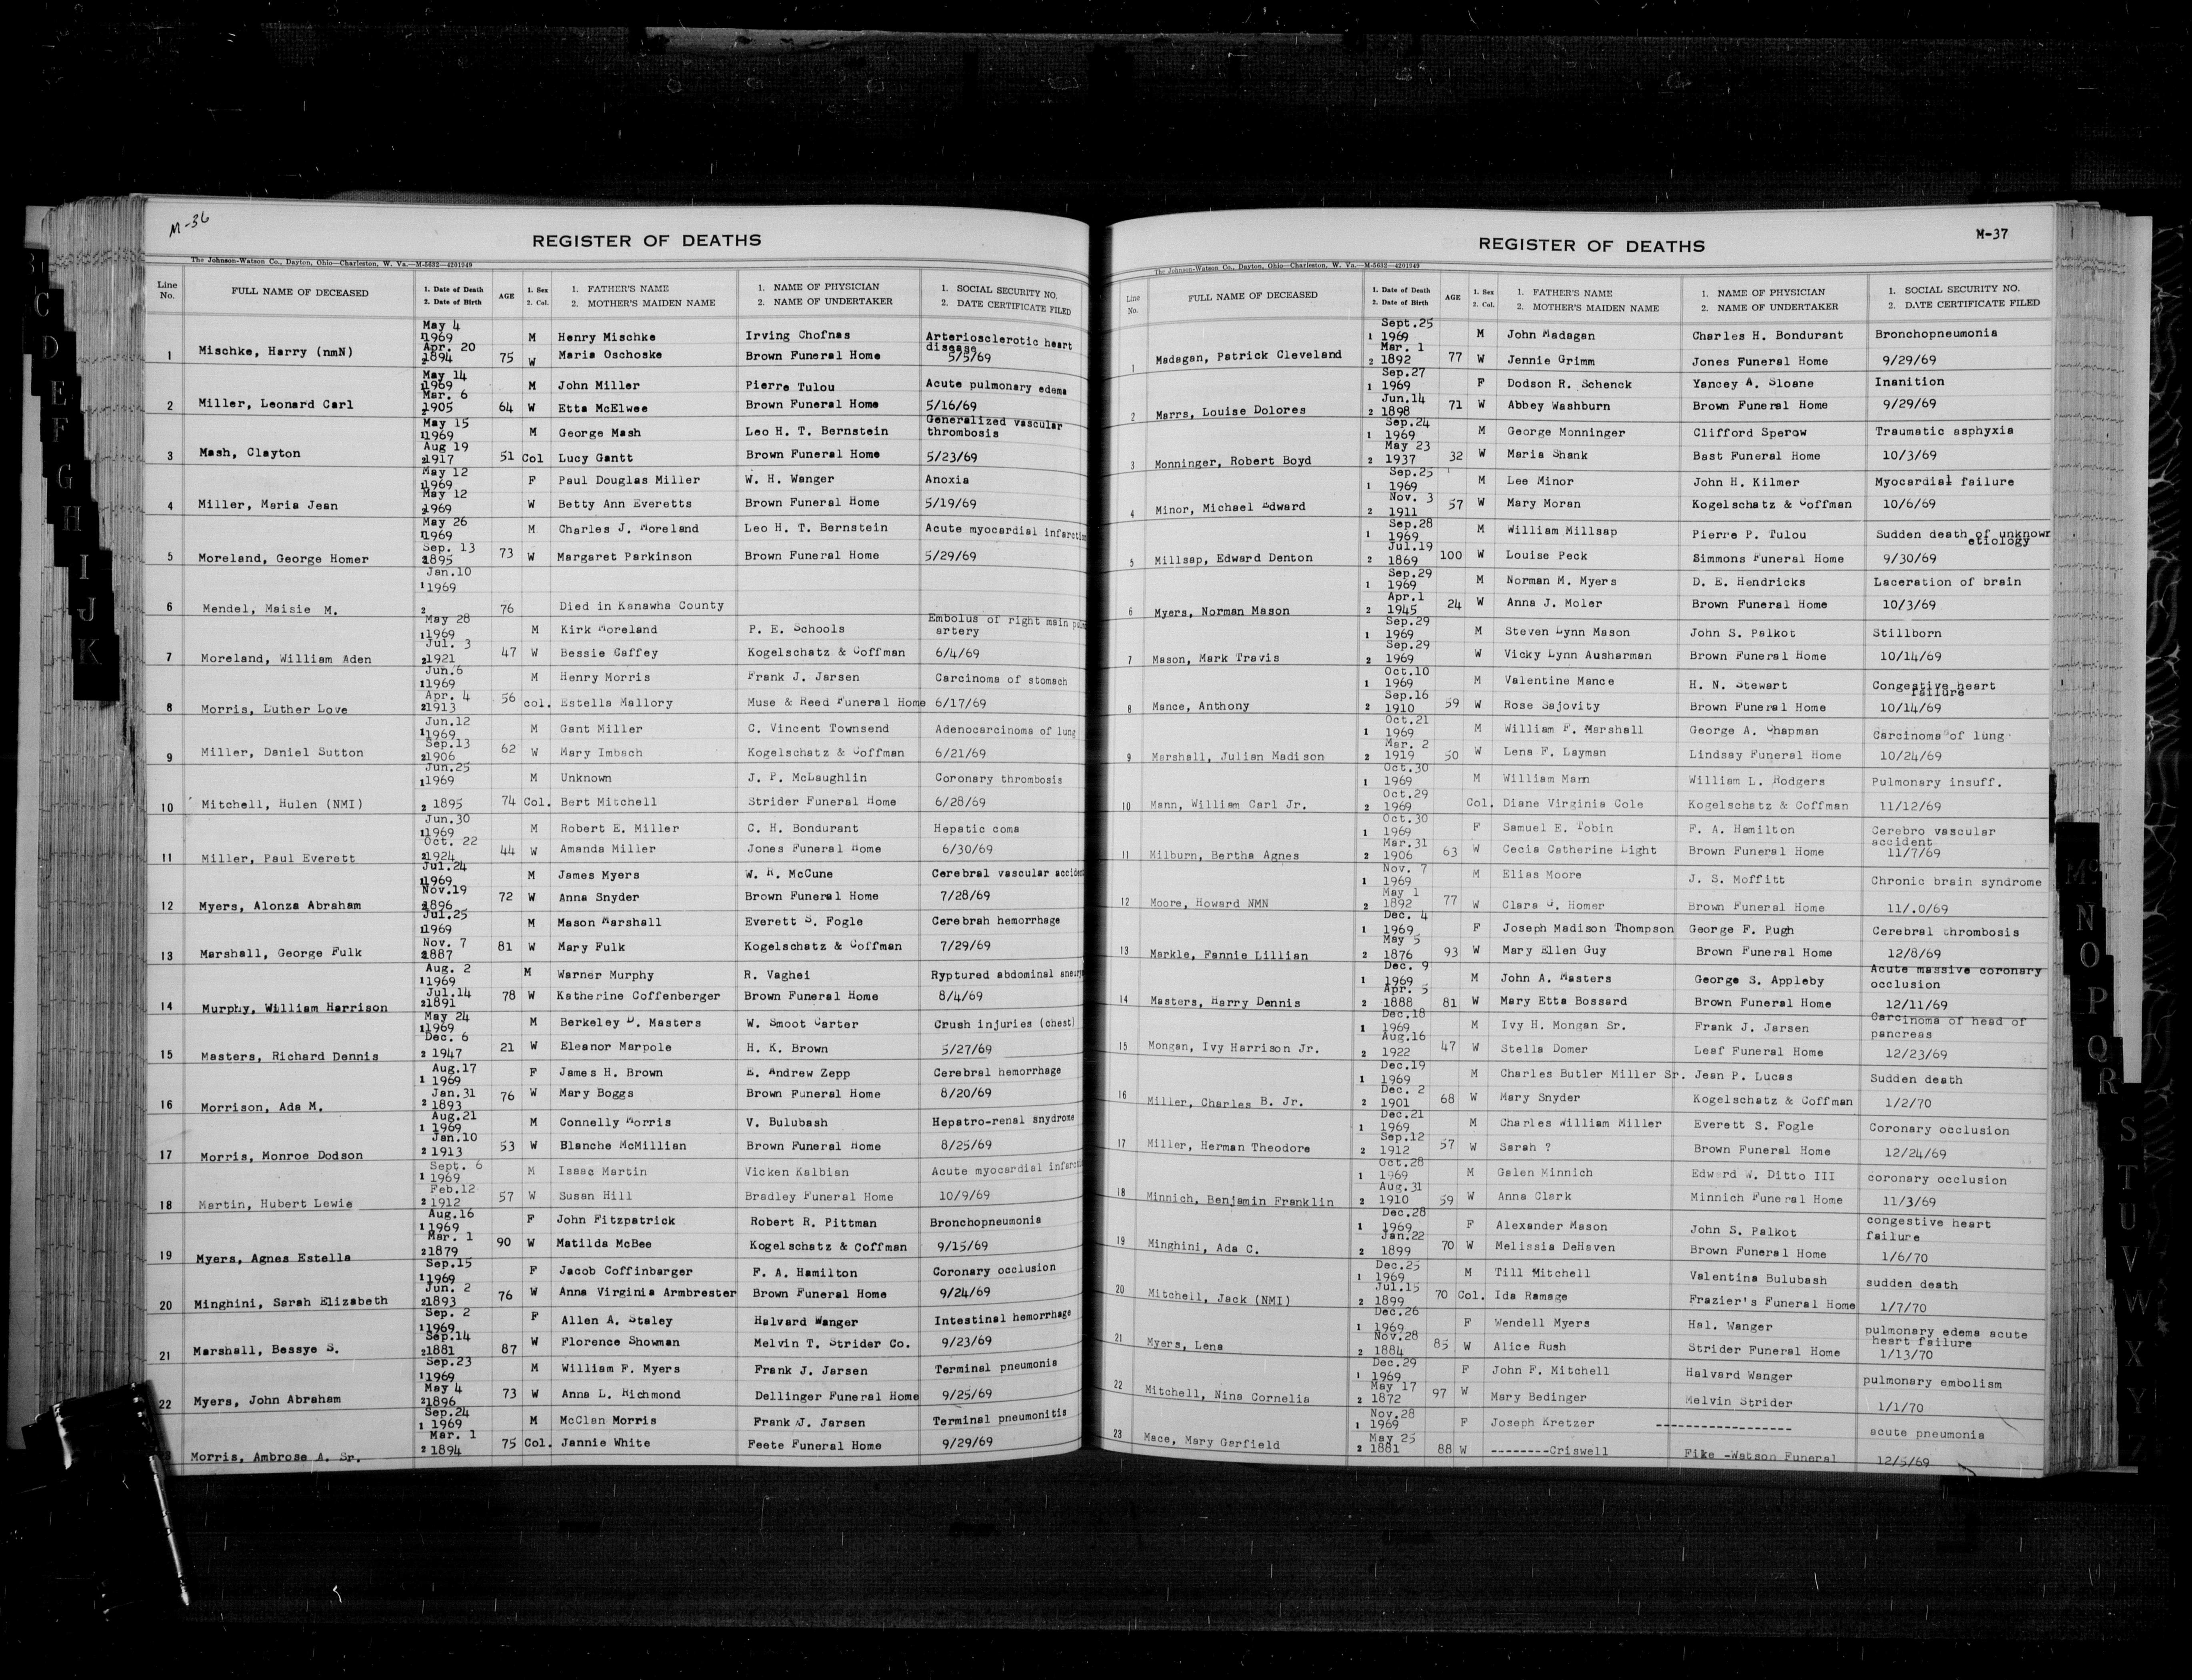 M-36
REGISTER OF DEATHS
The Johnson-Watson Co., Dayton, Ohio—Charleston, W. Va.—M-5632—4201949
Line No. FULL NAME OF DECEASED 1. Date of Death 2. Date of Birth AGE 1. Sex 2. Col. 1. FATHER'S NAME 2. MOTHER'S MAIDEN NAME 1. NAME OF PHYSICIAN 2. NAME OF UNDERTAKER 1. SOCIAL SECURITY NO. 2. DATE CERTIFICATE FILED
May 4
1 1969 M Henry Mischke Irving Chofnas Arteriosclerotic heart disease
Apr. 20
1 Mischke, Harry (nmN) 2 1894 75 W Maria Oschoske Brown Funeral Home 5/5/69
May 14
1 1969 M John Miller Pierre Tulou Acute pulmonary edema
Mar. 6
2 Miller, Leonard Carl 2 1905 64 W Etta McElwee Brown Funeral Home 5/16/69
May 15
1 1969 M George Mash Leo H. T. Bernstein Generalized vascular thrombosis
Aug 19
3 Mash, Clayton 2 1917 51 Col Lucy Gantt Brown Funeral Home 5/23/69
May 12
1 1969 F Paul Douglas Miller W. H. Wanger Anoxia
May 12
4 Miller, Maria Jean 2 1969 W Betty Ann Everetts Brown Funeral Home 5/19/69
May 26
1 1969 M Charles J. Moreland Leo H. T. Bernstein Acute myocardial infarctio
Sep. 13
5 Moreland, George Homer 2 1895 73 W Margaret Parkinson Brown Funeral Home 5/29/69
Jan.10
1 1969
6 Mendel, Maisie M. 2 76 Died in Kanawha County
May 28
1 1969 M Kirk Moreland P. E. Schools Embolus of right main artery
Jul. 3
7 Moreland, William Aden 2 1921 47 W Bessie Gaffey Kogelschatz & Coffman 6/4/69
Jun.6
1 1969 M Henry Morris Frank J. Jarsen Carcinoma of stomach
Apr. 4
8 Morris, Luther Love 2 1913 56 col. Estella Mallory Muse & Reed Funeral Home 6/17/69
Jun.12
1 1969 M Gant Miller C. Vincent Townsend Adenocarcinoma of lung
Sep.13
9 Miller, Daniel Sutton 2 1906 62 W Mary Imbach Kogelschatz & Coffman 6/21/69
Jun.25
1 1969 M Unknown J. P. McLaughlin Coronary thrombosis
10 Mitchell, Hulen (NMI) 2 1895 74 Col. Bert Mitchell Strider Funeral Home 6/28/69
Jun.30
1 1969 M Robert E. Miller C. H. Bondurant Hepatic coma
Oct. 22
11 Miller, Paul Everett 2 1924 44 W Amanda Miller Jones Funeral Home 6/30/69
Jul.24
1 1969 M James Myers W. R. McCune Cerebral vascular acciden
Nov.19
12 Myers, Alonza Abraham 2 1896 72 W Anna Snyder Brown Funeral Home 7/28/69
Jul.25
1 1969 M Mason Marshall Everett S. Fogle Cerebrah hemorrhage
Nov. 7
13 Marshall, George Fulk 2 1887 81 W Mary Fulk Kogelschatz & Coffman 7/29/69
Aug. 2
1 1969 M Warner Murphy R. Vaghei Ryptured abdominal aneury
Jul.14
14 Murphy, William Harrison 2 1891 78 W Katherine Coffenberger Brown Funeral Home 8/4/69
May 24
1 1969 M Berkeley D. Masters W. Smoot Carter Crush injuries (chest)
Dec. 6
15 Masters, Richard Dennis 2 1947 21 W Eleanor Marpole H. K. Brown 5/27/69
Aug.17
1 1969 F James H. Brown E. Andrew Zepp Cerebral hemorrhage
Jan.31
16 Morrison, Ada M. 2 1893 76 W Mary Boggs Brown Funeral Home 8/20/69
Aug.21
1 1969 M Connelly Morris V. Bulubash Hepatro-renal snydrome
Jan.10
17 Morris, Monroe Dodson 2 1913 53 W Blanche McMillian Brown Funeral Home 8/25/69
Sept. 6
1 1969 M Isaac Martin Vicken Kalbian Acute myocardial infarcti
Feb.12
18 Martin, Hubert Lewie 2 1912 57 W Susan Hill Bradley Funeral Home 10/9/69
Aug.16
1 1969 F John Fitzpatrick Robert R. Pittman Bronchopneumonia
Mar. 1
19 Myers, Agnes Estella 2 1879 90 W Matilda McBee Kogelschatz & Coffman 9/15/69
Sep.15
1 1969 F Jacob Coffinbarger F. A. Hamilton Coronary occlusion
Jun. 2
20 Minghini, Sarah Elizabeth 2 1893 76 W Anna Virginia Armbrester Brown Funeral Home 9/24/69
Sep. 2
1 1969 F Allen A. Staley Halvard Wanger Intestinal hemorrhage
Sep.14
21 Marshall, Bessye S. 2 1881 87 W Florence Showman Melvin T. Strider Co. 9/23/69
Sep.23
1 1969 M William F. Myers Frank J. Jarsen Terminal pneumonia
May 4
22 Myers, John Abraham 2 1896 73 W Anna L. Richmond Dellinger Funeral Home 9/25/69
Sep.24
1 1969 M McClan Morris Frank J. Jarsen Terminal pneumonitis
Mar. 1
3 Morris, Ambrose A. Sr. 2 1894 75 Col. Jannie White Feete Funeral Home 9/29/69
C
D
E
F
G
H
I
J
K
M-37
REGISTER OF DEATHS
The Johnson-Watson Co., Dayton, Ohio—Charleston, W. Va.—M-5632—4201949
Line No. FULL NAME OF DECEASED 1. Date of Death 2. Date of Birth AGE 1. Sex 2. Col. 1. FATHER'S NAME 2. MOTHER'S MAIDEN NAME 1. NAME OF PHYSICIAN 2. NAME OF UNDERTAKER 1. SOCIAL SECURITY NO. 2. DATE CERTIFICATE FILED
Sept.25
1 1969 M John Madagan Charles H. Bondurant Bronchopneumonia
Mar. 1
1 Madagan, Patrick Cleveland 2 1892 77 W Jennie Grimm Jones Funeral Home 9/29/69
Sep.27
1 1969 F Dodson R. Schenck Yancey A. Sloane Inanition
Jun.14
2 Marrs, Louise Dolores 2 1898 71 W Abbey Washburn Brown Funeral Home 9/29/69
Sep.24
1 1969 M George Monninger Clifford Sperow Traumatic asphyxia
May 23
3 Monninger, Robert Boyd 2 1937 32 W Maria Shank Bast Funeral Home 10/3/69
Sep.25
1 1969 M Lee Minor John H. Kilmer Myocardial failure
Nov. 3
4 Minor, Michael Edward 2 1911 57 W Mary Moran Kogelschatz & Coffman 10/6/69
Sep.28
1 1969 M William Millsap Pierre P. Tulou Sudden death of unknown etiology
Jul.19
5 Millsap, Edward Denton 2 1869 100 W Louise Peck Simmons Funeral Home 9/30/69
Sep.29
1 1969 M Norman M. Myers D. E. Hendricks Laceration of brain
Apr.1
6 Myers, Norman Mason 2 1945 24 W Anna J. Moler Brown Funeral Home 10/3/69
Sep.29
1 1969 M Steven Lynn Mason John S. Palkot Stillborn
Sep.29
7 Mason, Mark Travis 2 1969 W Vicky Lynn Ausharman Brown Funeral Home 10/14/69
Oct.10
1 1969 M Valentine Mance H. N. Stewart Congestive heart failure
Sep.16
8 Mance, Anthony 2 1910 59 W Rose Sajovity Brown Funeral Home 10/14/69
Oct.21
1 1969 M William F. Marshall George A. Chapman Carcinoma of lung
Mar. 2
9 Marshall, Julian Madison 2 1919 50 W Lena F. Layman Lindsay Funeral Home 10/24/69
Oct.30
1 1969 M William Mann William L. Rodgers Pulmonary insuff.
Oct.29
10 Mann, William Carl Jr. 2 1969 Col. Diane Virginia Cole Kogelschatz & Coffman 11/12/69
Oct.30
1 1969 F Samuel E. Tobin F. A. Hamilton Cerebro vascular accident
Mar.31
11 Milburn, Bertha Agnes 2 1906 63 W Cecia Catherine Light Brown Funeral Home 11/7/69
Nov. 7
1 1969 M Elias Moore J. S. Moffitt Chronic brain syndrome
May 1
12 Moore, Howard NMN 2 1892 77 W Clara G. Homer Brown Funeral Home 11/.0/69
Dec. 4
1 1969 F Joseph Madison Thompson George F. Pugh Cerebral thrombosis
May 5
13 Markle, Fannie Lillian 2 1876 93 W Mary Ellen Guy Brown Funeral Home 12/8/69
Dec. 9
1 1969 M John A. Masters George S. Appleby Acute massive coronary occlusion
Apr. 5
14 Masters, Harry Dennis 2 1888 81 W Mary Etta Bossard Brown Funeral Home 12/11/69
Dec.18
1 1969 M Ivy H. Mongan Sr. Frank J. Jarsen Carcinoma of head of pancreas
Aug.16
15 Mongan, Ivy Harrison Jr. 2 1922 47 W Stella Domer Leaf Funeral Home 12/23/69
Dec.19
1 1969 M Charles Butler Miller Sr. Jean P. Lucas Sudden death
Dec. 2
16 Miller, Charles B. Jr. 2 1901 68 W Mary Snyder Kogelschatz & Coffman 1/2/70
Dec.21
1 1969 M Charles William Miller Everett S. Fogle Coronary occlusion
Sep.12
17 Miller, Herman Theodore 2 1912 57 W Sarah ? Brown Funeral Home 12/24/69
Oct.28
1 1969 M Galen Minnich Edward W. Ditto III coronary occlusion
Aug.31
18 Minnich, Benjamin Franklin 2 1910 59 W Anna Clark Minnich Funeral Home 11/3/69
Dec.28
1 1969 F Alexander Mason John S. Palkot congestive heart failure
Jan.22
19 Minghini, Ada C. 2 1899 70 W Melissia DeHaven Brown Funeral Home 1/6/70
Dec.25
1 1969 M Till Mitchell Valentina Bulubash sudden death
Jul.15
20 Mitchell, Jack (NMI) 2 1899 70 Col. Ida Ramage Frazier's Funeral Home 1/7/70
Dec.26
1 1969 F Wendell Myers Hal. Wanger pulmonary edema acute heart failure
Nov.28
21 Myers, Lena 2 1884 85 W Alice Rush Strider Funeral Home 1/13/70
Dec.29
1 1969 F John F. Mitchell Halvard Wanger pulmonary embolism
May 17
22 Mitchell, Nina Cornelia 2 1872 97 W Mary Bedinger Melvin Strider 1/1/70
Nov.28
1 1969 F Joseph Kretzer ---------------- acute pneumonia
May 25
23 Mace, Mary Garfield 2 1881 88 W --------Criswell Fike -Watson Funeral 12/5/69
Mc
N
O
P
Q
R
S
T
U
V
W
X
Y